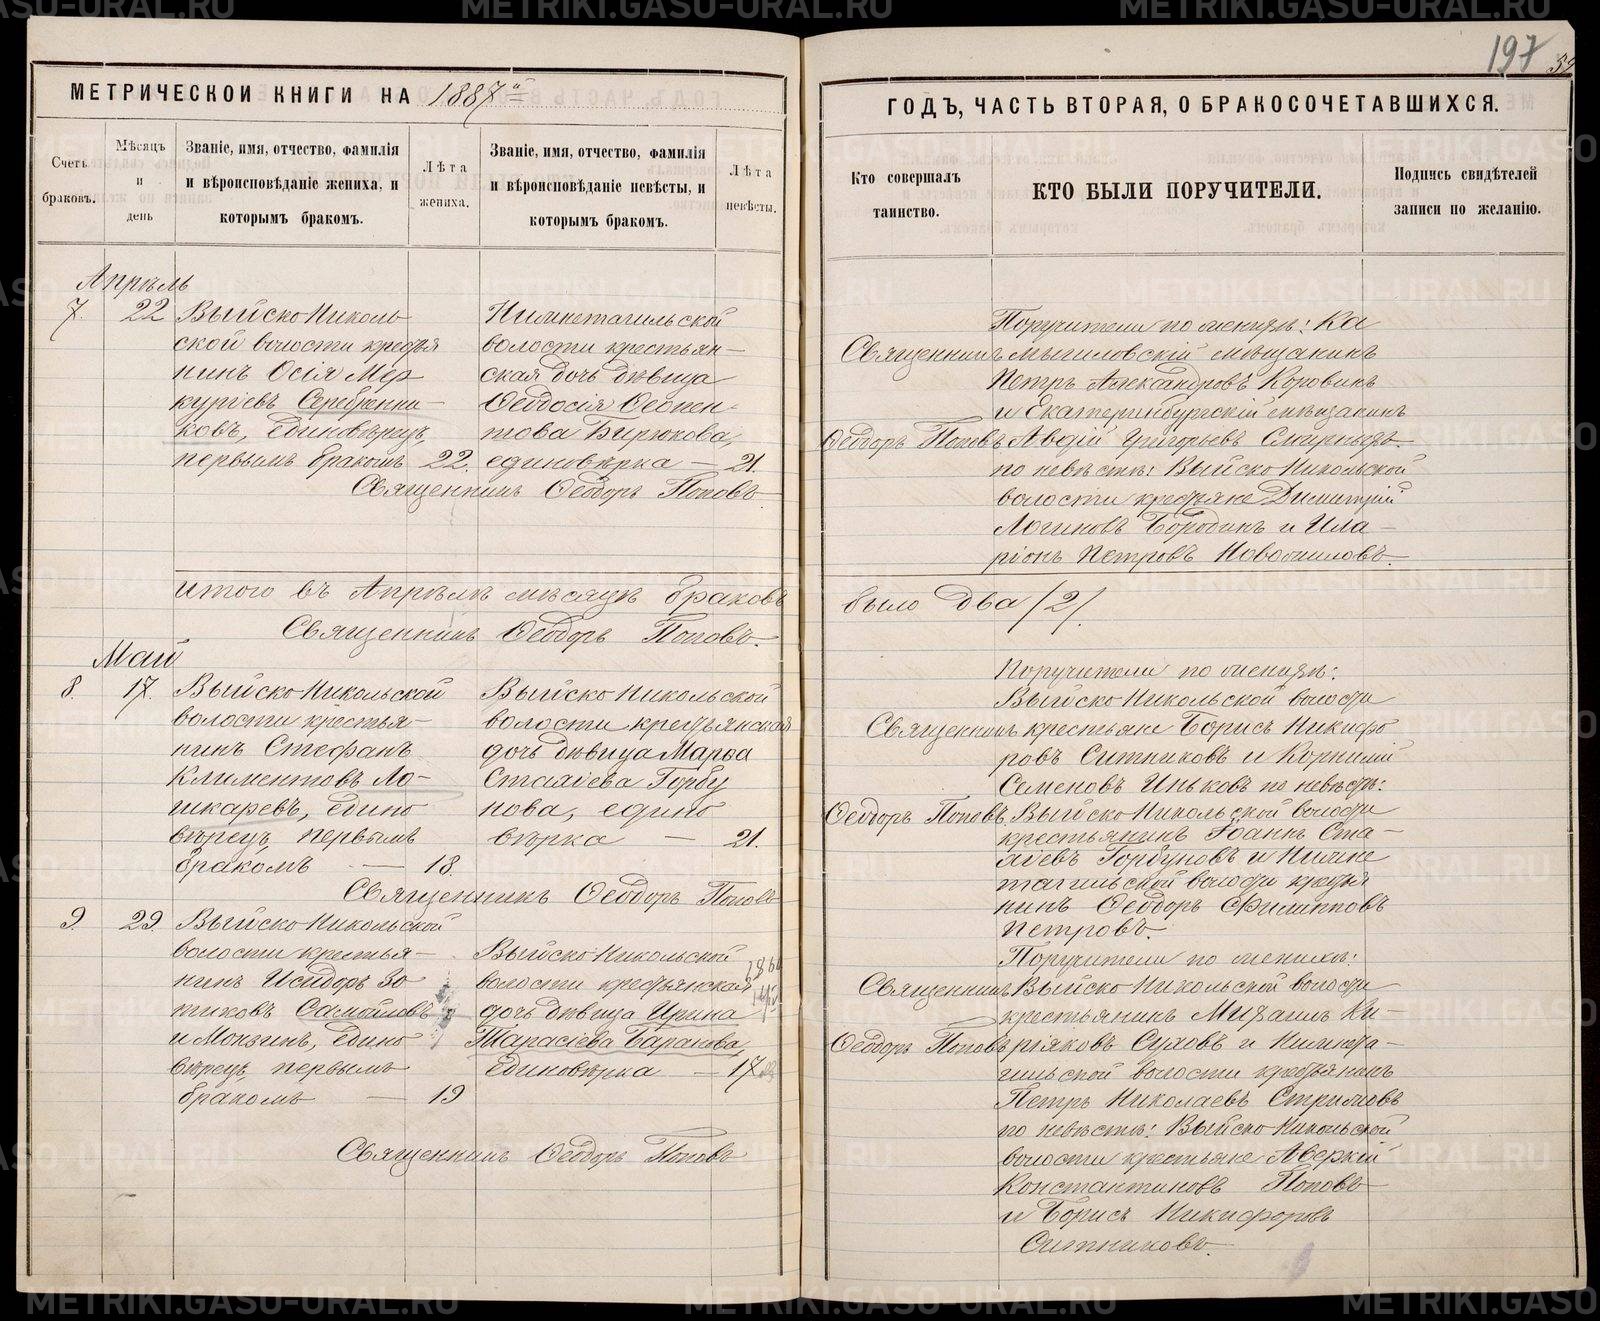 197
МЕТРИЧЕСКОЙ КНИГИ НА 1887й
ГОДЪ, ЧАСТЬ ВТОРАЯ, О БРАКОСОЧЕТАВШИХСЯ.
Счетъ браковъ.
Мѣсяцъ и день
Званіе, имя, отчество, фамилія
и вѣроисповѣданіе жениха, и
которымъ бракомъ.
Лѣта жениха.
Званіе, имя, отчество, фамилія
и вѣроисповѣданіе невѣсты, и
которымъ бракомъ.
Лѣта невѣсты.
Кто совершалъ
таинство.
КТО БЫЛИ ПОРУЧИТЕЛИ.
Подпись свидѣтелей
записи по желанію.
Апрѣль
7. 22
Выйско Николь
ской волости кресть
нинъ Осія Мер
куріевъ Серебренни-
ковъ, единовѣрецъ,
первымъ бракомъ 22.
Нижнетагильской
волости крестьян-
ская дочь дѣвица
Ѳеодосія Леонен-
това Бирюкова,
единовѣрка — 21.
Священникъ Ѳеодоръ Поповъ
Священникъ
Ѳеодоръ Поповъ
Поручители по женихѣ: Ка
мышловскій мѣщанинъ
Петръ Александровъ Коровинъ
и Екатеринбургскій мѣщанинъ
Авдій Григорьевъ Смирныхъ
по невѣстѣ: Выйско Никольской
волости крестьяне Димитрій
Логиновъ Бородинъ и Ила-
ріонъ Петровъ
Итого въ Апрѣлѣ мѣсяцѣ браковъ
было два /2/.
Священникъ Ѳеодоръ Поповъ.
Май
8. 17.
Выйско Никольской
волости крестья-
нинъ Стефанъ
Климентовъ Ло-
шкаревъ, едино
вѣрецъ, первымъ
бракомъ — 18.
Выйско Никольской
волости крестьянская
дочь дѣвица Марѳа
Стахіева Горбу
нова, едино
вѣрка — 21.
Священникъ Ѳеодоръ Поповъ
Священникъ
Ѳеодоръ Поповъ
Поручители по женихѣ:
Выйско Никольской волости
крестьяне Борисъ Никифо
ровъ Ситниковъ и Корнилій
Семеновъ Иньковъ по невѣстѣ:
Выйско Никольской волости
крестьянинъ Іоаннъ Ста-
хіевъ Горбуновъ и Нижне
тагильской волости крестья
нинъ Ѳеодоръ Филипповъ
Петровъ.
9. 29
Выйско Никольской
волости крестья-
нинъ Исидоръ Зо
тиковъ Самойловъ
и Мокзинъ, едино
вѣрецъ, первымъ
бракомъ — 19
Выйско Никольской
волости крестьянская
дочь дѣвица Ирина
Тарасіева Баранова,
Единовѣрка — 17
Священникъ Ѳеодоръ Поповъ
Священникъ
Ѳеодоръ Поповъ
Поручители по женихѣ:
Выйско Никольской волости
крестьянинъ Михаилъ Ки-
ріяковъ Суховъ и Нижнета-
гильской волости крестьянинъ
Петръ Николаевъ Стрижовъ
по невѣстѣ: Выйско Никольской
волости крестьяне Аверкій
Константиновъ Поповъ
и Борисъ Никифоровъ
Ситниковъ.
METRIKI.GASO-URAL.RU